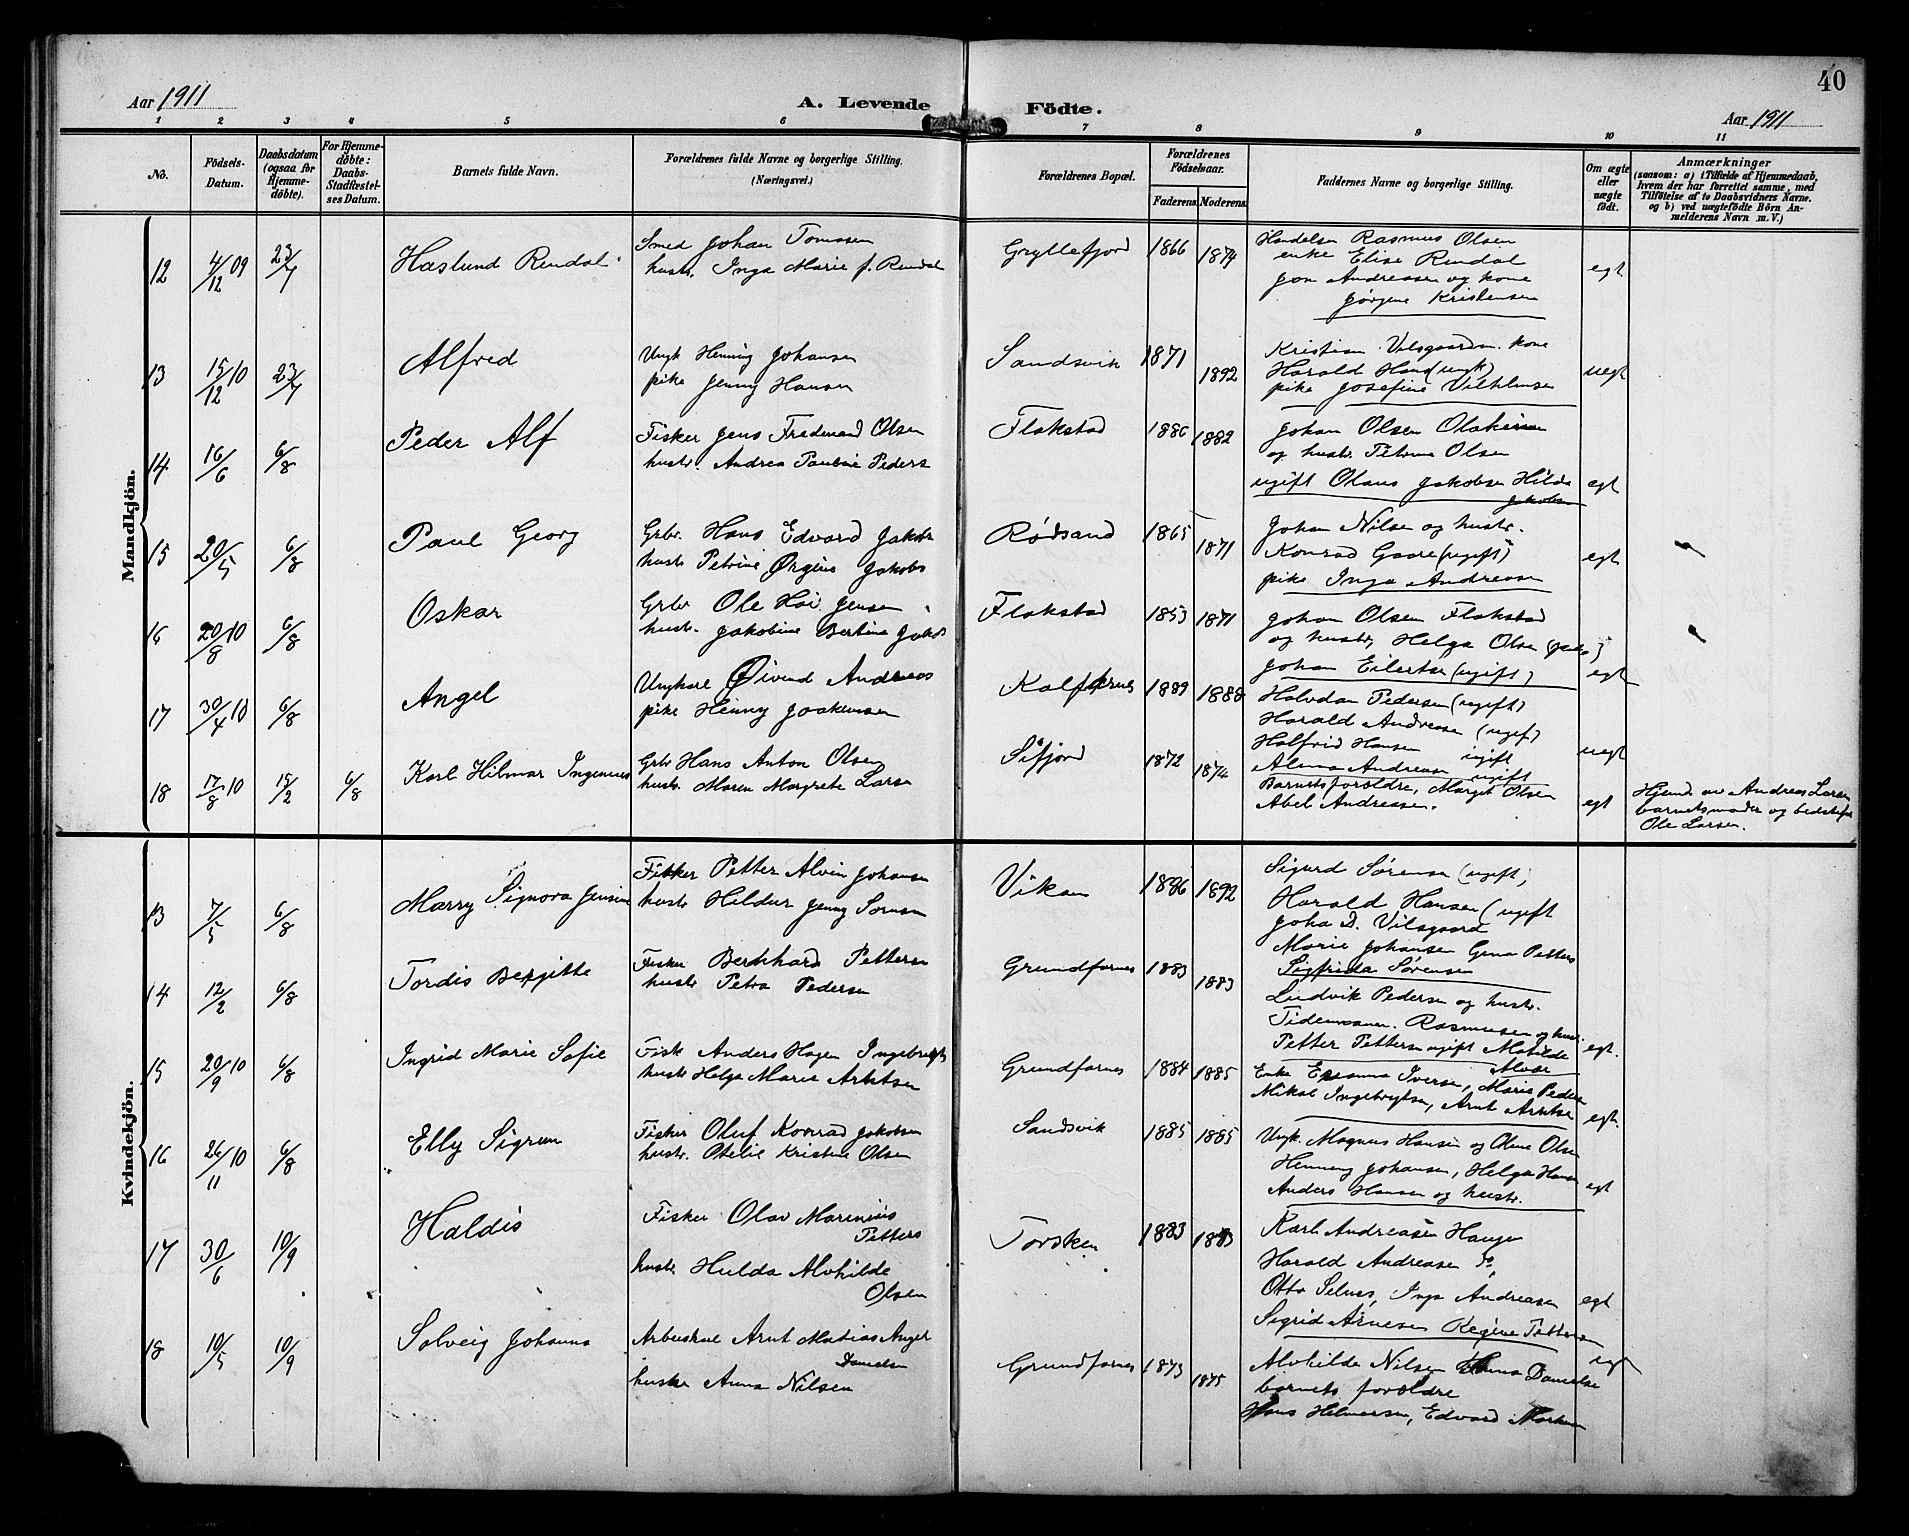 40
Aar 1911
A. Levende Födte.
Aar 1911
1 2 3 4 5 6 7 8 9 10 11
No.
Födsels-
Datum.
Daabsdatum
(ogsaa for
Hjemme-
döbte).
For Hjemme-
döbte:
Daabs-
Stadfæstel-
ses Datum.
Barnets fulde Navn.
Forældrenes fulde Navne og borgerlige Stilling.
(Næringsvei.)
Forældrenes Bopæl.
Forældrenes
Födselsaar.
Faderens. Moderens.
Faddernes Navne og borgerlige Stilling.
Om ægte
eller
uægte
födt.
Anmærkninger
(saasom: a) i Tilfælde af Hjemmedaab,
hvem der har forrettet samme, med
Tilföielse af to Daabsvidners Navne.
og b) ved uægtefödte Börn An-
melderens Navn m. V.)
Mandkjön.
12 4/12 09 23/7 Haslund Rendal
Smed Johan Tomasen
hustr. Inga Marie f. Rendal
Gryllefjord 1866 1874
Handelsm Rasmus Olsen
enke Elise Rendal
Jon Andreassen og kone
Jørgine Kristensen
egt
13 15/12 10 23/7 Alfred
Ungk Henning Johansen
pike Jenny Hansen
Sandsvik 1871 1892
Kristian Vilsgaard m. kone
Harald Hans (ungk)
pike Josefine Vilhelmsen
uegt
14 16/6 6/8 Peder Alf
Fisker Jens Fredenand Olsen
hustr. Andrea Pauline Peders
Flakstad 1886 1882
Johan Olsen
og hustr. Petrine Olsen
ugift Olaus Jakobsen Hilda
Jakobsen
egt
15 20/5 6/8 Paul Georg
Grbr. Hans Edvard Jakobs
hustr Petrine Ørgine Jakobs
Rødsand 1865 1871
Johan Nilsen og hustr.
Konrad Gaare (ugift)
pike Inga Andreasen
egt
16 20/8 10 6/8 Oskar
Grbr Ole Hai Jensen
hustr. Jakobine Bertine Jakobs
Flakstad 1853 1871
Johan Olsen Flakstad
og hustr, Helga Olsen (pike)
Johan Eilertsen (ugift)
egt
17 30/4 10 6/8 Angel
Ungkare Øivend Andreas
pike Henny Joakimsen
Kalfarnes 1889 1888
Halvdan Pedersen (ugift)
Harald Andreasen (ugif)
Halfrid Hansen ugift
Alma Andreasen ugift
uegt
18 17/8 10 15/2 6/8 Karl Hilmar Ingenius
Grbr Hans Anton Olsen
hustr. Maren Margrete Larsen
Sifjord 1872 1874
Barnets foreldre, Margit Olsen
Abel Andreasen.
egt
Hjemd. av Andreas Larsen
barnets moder og bedstefar
Ole Larsen.
Kvindekjön.
13 7/5 6/8 Marry Signora Jensine
Fisker Petter Alvin Johansen
hustr Hildur Jenny Sørensen
Vikan 1886 1892
Sigurd Sørensen (ugift)
Harald Hansen (ugift
Joha D. Vilsgaard
Marie Johansen Gina Petters
Sigfrida Sørensen
14 12/2 6/8 Tordis Bergitte
Fisker Bernhard Pettersen
hustr Petra Pedersen
Grundfarnes 1883 1883
Ludvik Pedersen og hustr.
Rasmusen og hust.
Petter Pettersen ugift Matilde
egt.
15 20/9 10 6/8 Ingrid Marie Sofie
Fisk Anders Hagen Ingebrigts
hustr Helga Marie Arntsen
Grundfarnes 1884 1885
Enke Iversen, Marie Pedersen
Mikal Ingebrigtsen, Arnt Arntsen
egt.
16 26/11 10 6/8 Elly Sigrun
Fisker Oluf Konrad Jakobsen
hustr. Otelie Kristine Olsen
Sandsvik 1885 1885
Ungk. Magnus Hansen og Oline Olsen
Henning Johansen, Helga Hansen
Anders Hansen og hustr.
egt
17 30/6 10/9 Haldis
Fisker Olav Marenius
Petters
hustr Hulda Alvhilde
Olsen
Torsken 1883 1883
Karl Andreasen Haugen
Harald Andreasen do,
Otto Selnes, Inga Andreasen
Sigrid Arnesen Regine Pettersen
egt
18 10/5 10/9 Solveig Johanna
Arbeiskar Arnt Matias Angel
Danielsen
hustr Anna Nilsen
Grundfarnes 1873 1875
Alvhilda Nilsen Danielse
barnets foreldre
Hans Helmersen, Edvard
egt